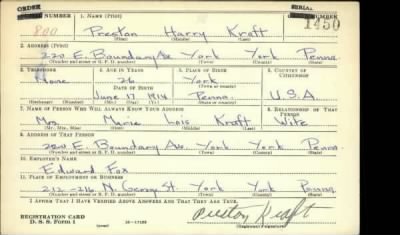 ORDER NUMBER 1. NAME (PRINT) SERIAL NUMBER
800 Preston Harry Kraft 1450
(First) (Middle) (Last)
2. ADDRESS (PRINT)
220 E. Boundary Ave York York Penna
(Number and street or R. F. D. number) (Town) (County) (State)
3. TELEPHONE 4. AGE IN YEARS 5. PLACE OF BIRTH 6. COUNTRY OF CITIZENSHIP
None 26 York
DATE OF BIRTH (Town or county)
June 17 1914 Penna. U.S.A
(Exchange) (Number) (Mo.) (Day) (Yr.) (State or country)
7. NAME OF PERSON WHO WILL ALWAYS KNOW YOUR ADDRESS 8. RELATIONSHIP OF THAT PERSON
Mrs. Marie Lois Kraft Wife
(Mr., Mrs., Miss) (First) (Middle) (Last)
9. ADDRESS OF THAT PERSON
220 E. Boundary Ave. York York Penna
(Number and street or R. F. D. number) (Town) (County) (State)
10. EMPLOYER'S NAME
Edward Fox
11. PLACE OF EMPLOYMENT OR BUSINESS
212-216 N. George St. York York Penna
(Number and street or R. F. D. number) (Town) (County) (State)
I AFFIRM THAT I HAVE VERIFIED ABOVE ANSWERS AND THAT THEY ARE TRUE.
REGISTRATION CARD Preston Kraft
D. S. S. Form 1 (Registrant's signature)